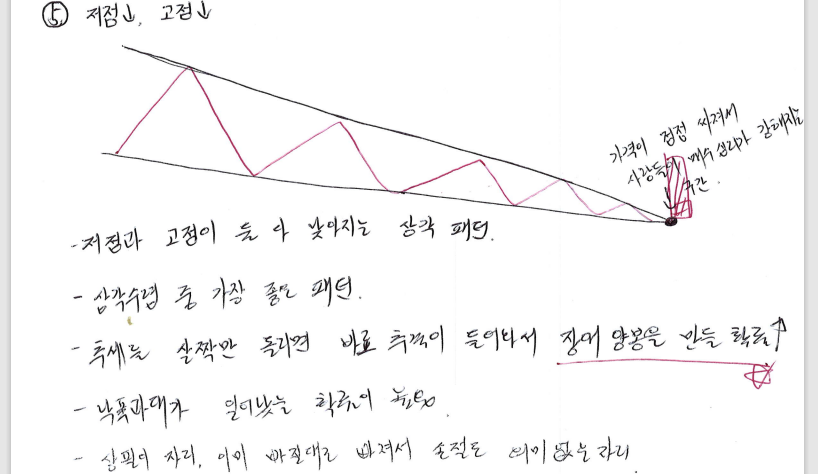 ⑤ 저점↓, 고점↓
가격이 점점 싸져서
사람들의 매수심리가 강해지는
구간.
- 저점과 고점이 둘 다 낮아지는 삼각 패턴.
- 삼각수렴 중 가장 좋은 패턴.
- 추세를 살짝만 돌리면 바로 추격이 들어와서 장대양봉을 만들 확률↑
- 낙폭과대가 일어났을 확률이 높음.
- 자리, 이미 빠질대로 빠져서 손절도 의미없는 자리